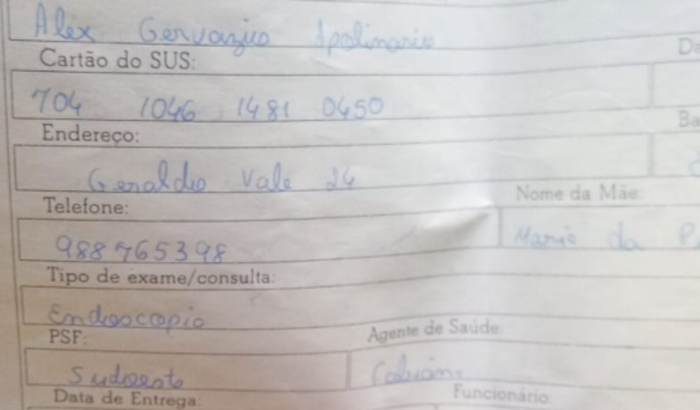 Alex Gervazio Apolinario
Cartão do SUS:
704 1046 1481 0450
Endereço: Ba
Geraldo Vale 24
Telefone: Nome da Mãe:
988765398 Maria da P
Tipo de exame/consulta:
Endoscopia
PSF: Agente de Saúde
Sudoeste
Data de Entrega: Funcionário: